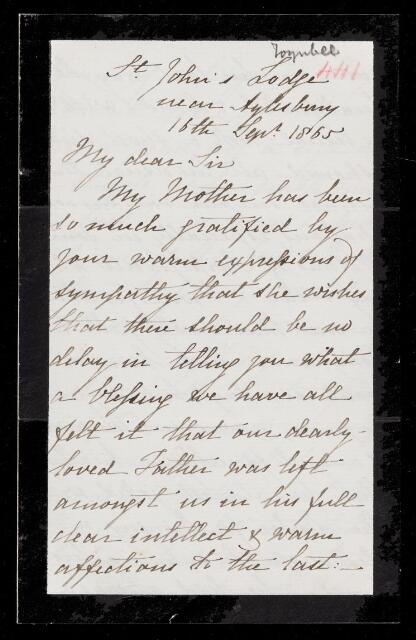 Toynbee
441
St. John's Lodge
near Aylesbury
16th Sept. 1865
My dear Sir
My Mother has been
so much gratified by
your warm expressions of
sympathy that she wishes
that there should be no
delay in telling you what
a blessing we have all
felt it that our dearly-
loved Father was left
amongst us in his full
clear intellect & warm
affections to the last:—